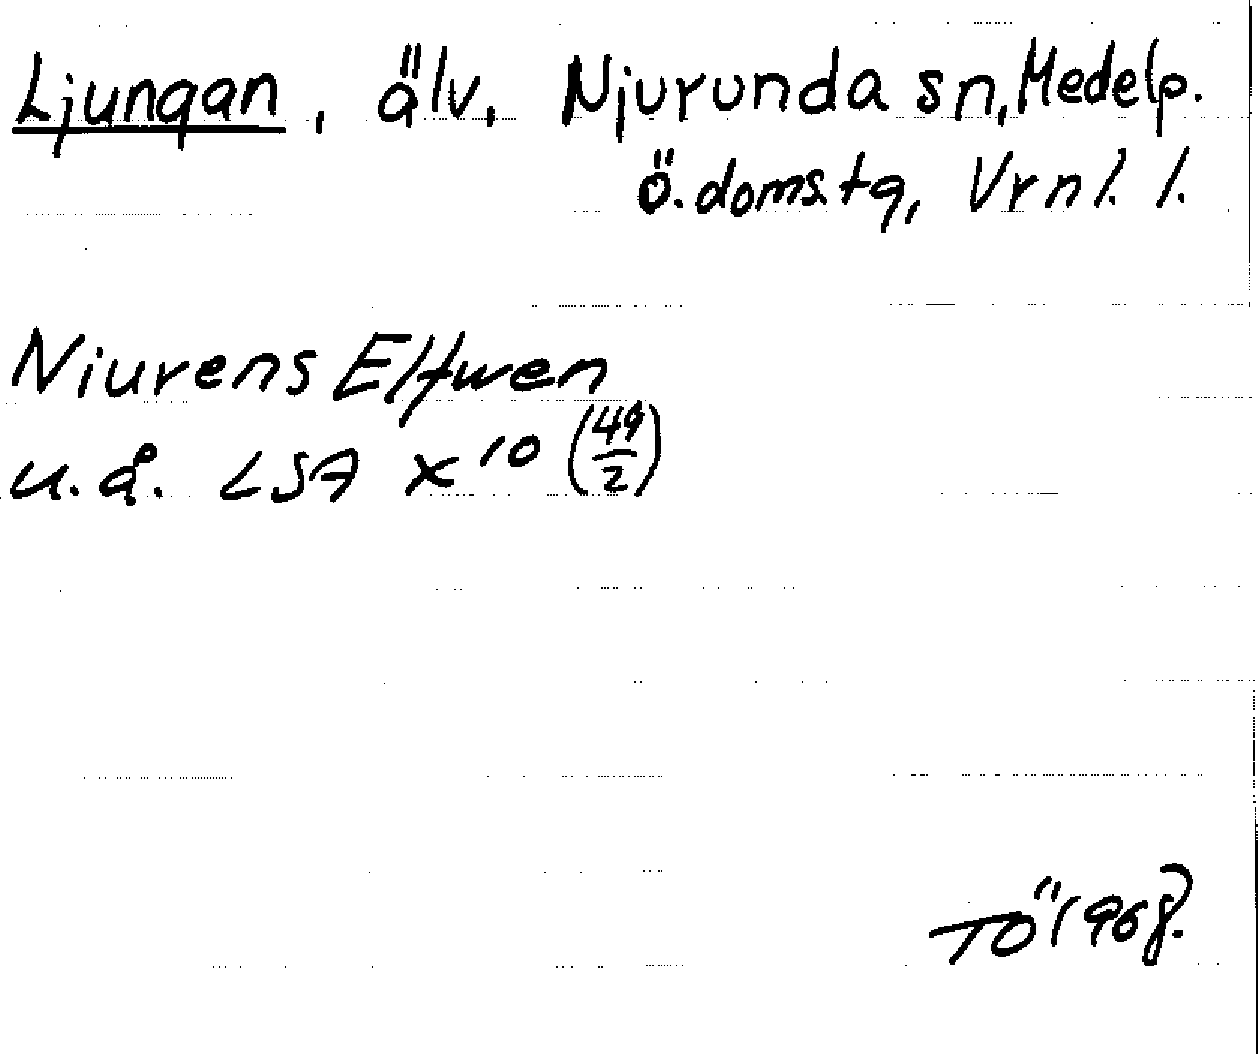 Ljungan, älv. Njurunda sn, Medelp.
Ö. doms. tg, Vrnl. l.
Niurens Elfwen
u. å. LSA X 10 (49/2)
TÖ 1968.